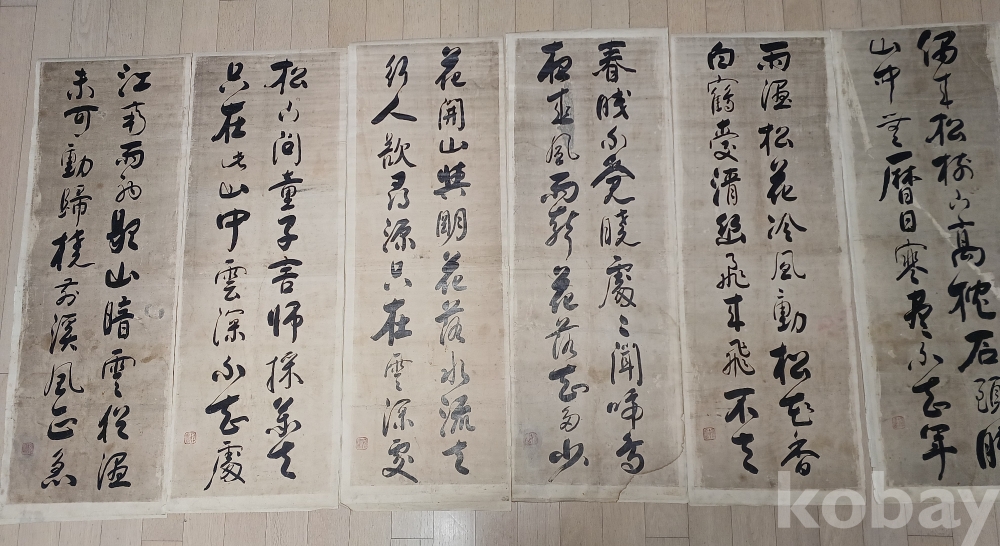 偶来松樹下高枕石頭眠
山中無曆日寒盡不知年
雨湿松花冷風動松花香
白鶴愛清幽飛来飛不去
春眠不覺曉處々聞啼鳥
夜来風雨聲花落知多少
花開山與明花落水流去
行人欲尋源只在雲深處
松下問童子言師採藥去
只在此山中雲深不知處
江南雨初歇山暗雲猶湿
未可動歸橈前溪風正急
kobay